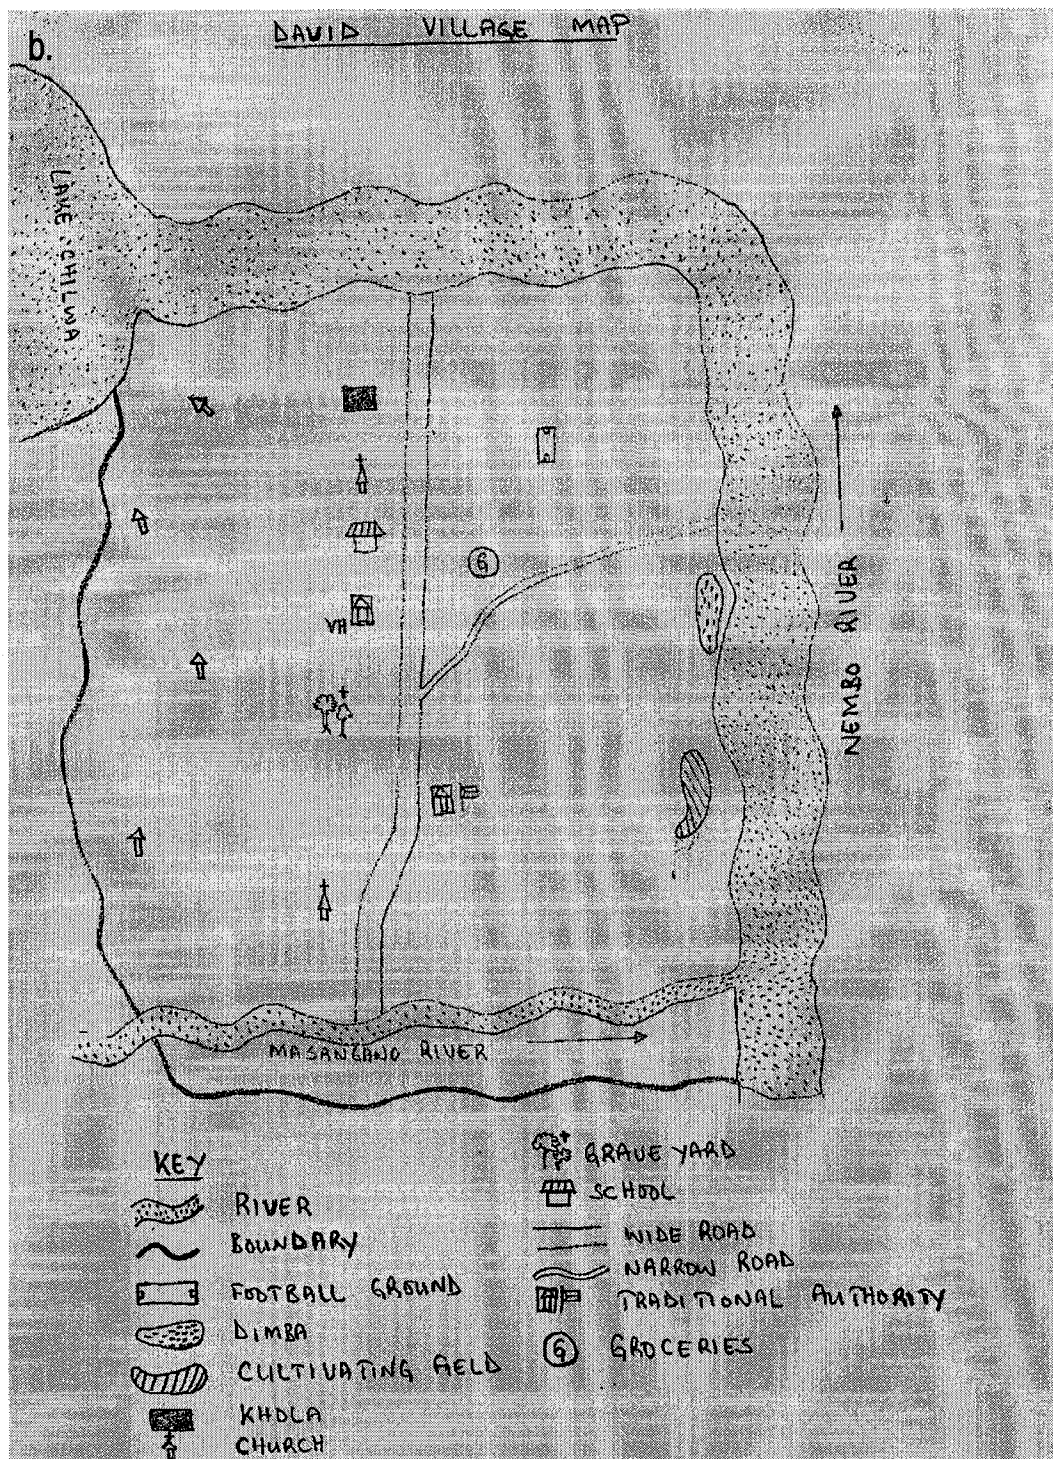 b.
DAVID VILLAGE MAP
LAKE CHILWA
G
VH
NEMBO RIVER
MASANGANO RIVER
KEY
RIVER
BOUNDARY
FOOTBALL GROUND
DIMBA
CULTIVATING FIELD
KHOLA
CHURCH
GRAVE YARD
SCHOOL
WIDE ROAD
NARROW ROAD
TRADITIONAL AUTHORITY
G GROCERIES